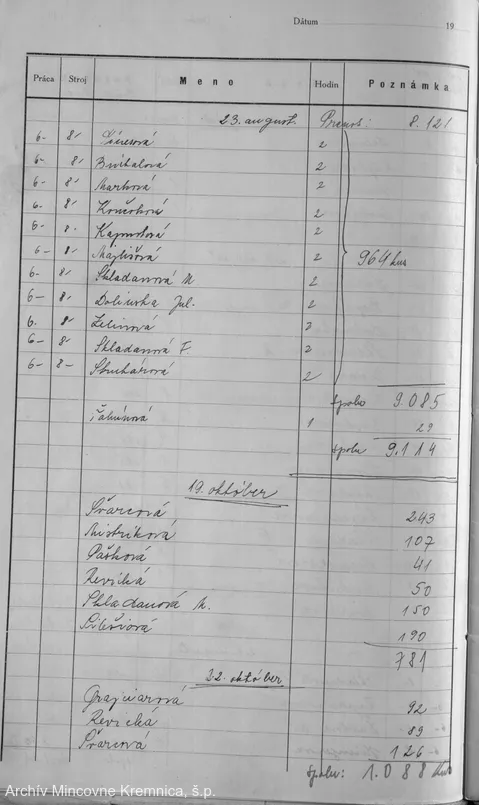 Dátum 19
Práca Stroj Meno Hodín Poznámka
23. august. Prenos: 8.121
6- 8/ 2
6- 8/ Bintalová 2
6- 8/ Marková 2
6- 8/ 2
6- 8. 2
6- 8/ Majlišová 2
6- 8/ Skladanová M. 2
6- 8/ Dolinska Jul. 2
6. 8/ Zelinová 2
6- 8/ Skladanová F. 2
6- 8- 2
964 kus
spolu 9.085
1 29
spolu 9.114
19. október
Švarcová 243
Mistríková 107
Pašková 41
Revická 50
Skladanová M. 150
190
781
22. október
92
Revicka 89
Švarcová 126
spolu: 1.088 kus
Archív Mincovne Kremnica, š.p.